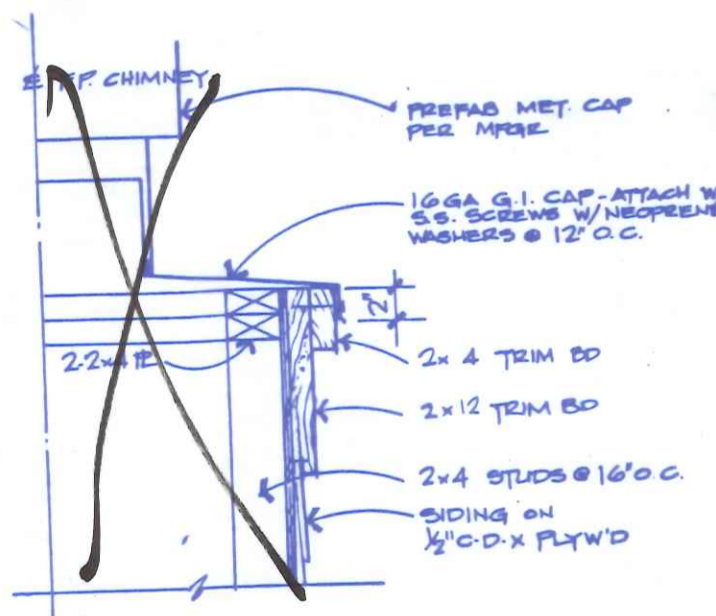 ℄ F.P. CHIMNEY
PREFAB MET. CAP
PER MFGR
16 GA G.I. CAP - ATTACH W
S.S. SCREWS W/ NEOPRENE
WASHERS @ 12" O.C.
2"
2-2x4 ℙ
2x4 TRIM BD
2x12 TRIM BD
2x4 STUDS @ 16" O.C.
SIDING ON
½" C-D-X PLYW'D